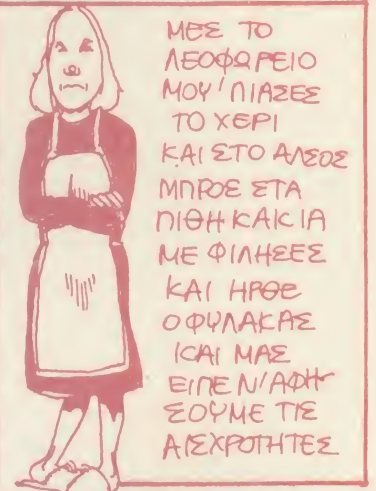 ΜΕΣ ΤΟ
ΛΕΟΦΩΡΕΙΟ
ΜΟΥ'ΠΙΑΣΕΣ
ΤΟ ΧΕΡΙ
ΚΑΙ ΣΤΟ ΑΛΣΟΣ
ΜΠΡΟΣ ΣΤΑ
ΠΙΘΗΚΑΚΙΑ
ΜΕ ΦΙΛΗΣΕΣ
ΚΑΙ ΗΡΘΕ
Ο ΦΥΛΑΚΑΣ
ΚΑΙ ΜΑΣ
ΕΙΠΕ Ν'ΑΦΗ-
ΣΟΥΜΕ ΤΙΣ
ΑΙΣΧΡΟΤΗΤΕΣ